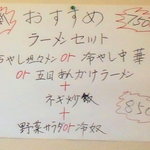 おすすめ
750
ラーメンセット
冷やし担々メン or 冷やし中華
or 五目あんかけラーメン
+
ネギ炒飯
850
+
野菜サラダ or 冷奴